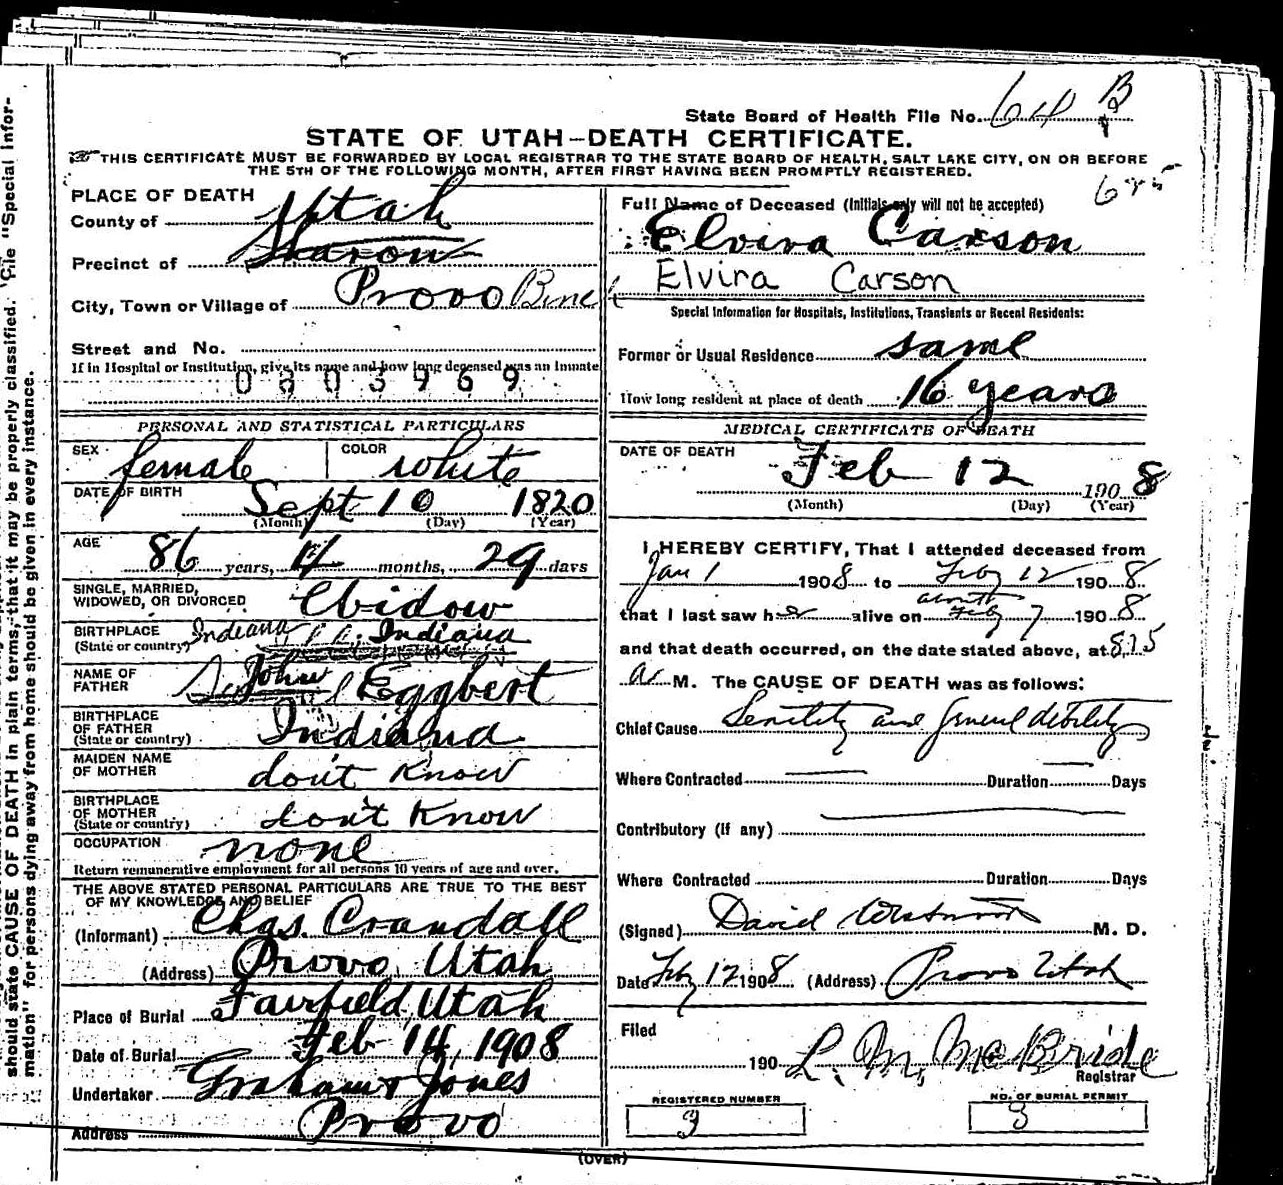 State Board of Health File No. 64 B
STATE OF UTAH—DEATH CERTIFICATE.
THIS CERTIFICATE MUST BE FORWARDED BY LOCAL REGISTRAR TO THE STATE BOARD OF HEALTH, SALT LAKE CITY, ON OR BEFORE
THE 5TH OF THE FOLLOWING MONTH, AFTER FIRST HAVING BEEN PROMPTLY REGISTERED.
PLACE OF DEATH
County of Utah
Precinct of Sharon
City, Town or Village of Provo Bench
Street and No.
If in Hospital or Institution, give its name and how long deceased was an inmate
0803969
PERSONAL AND STATISTICAL PARTICULARS
SEX female COLOR white
DATE OF BIRTH Sept 10 1820
(Month) (Day) (Year)
AGE 86 years, months, 29 days
SINGLE, MARRIED,
WIDOWED, OR DIVORCED Widow
BIRTHPLACE
(State or country) Indiana Indiana
NAME OF
FATHER John Eggbert
BIRTHPLACE
OF FATHER
(State or country) Indiana
MAIDEN NAME
OF MOTHER don't Know
BIRTHPLACE
OF MOTHER
(State or country) don't Know
OCCUPATION none
Return remunerative employment for all persons 10 years of age and over.
THE ABOVE STATED PERSONAL PARTICULARS ARE TRUE TO THE BEST
OF MY KNOWLEDGE AND BELIEF
(Informant) Chas. Crandall
(Address) Provo, Utah
Place of Burial Fairfield, Utah
Date of Burial Feb 14, 1908
Undertaker Graham & Jones
Address Provo
Full Name of Deceased (Initials only will not be accepted)
Elvira Carson
Elvira Carson
Special Information for Hospitals, Institutions, Transients or Recent Residents:
Former or Usual Residence same
How long resident at place of death 16 years
MEDICAL CERTIFICATE OF DEATH
DATE OF DEATH
Feb 12 1908
(Month) (Day) (Year)
I HEREBY CERTIFY, That I attended deceased from
Jan 1 1908 to Feby 12 1908
that I last saw her alive on about Feby 7 1908
and that death occurred, on the date stated above, at 8.15
a M. The CAUSE OF DEATH was as follows:
Chief Cause Senility and general debility
Where Contracted Duration Days
Contributory (if any)
Where Contracted Duration Days
(Signed) David Westwood M. D.
Date Feby 12 1908 (Address) Provo Utah
Filed
190 L. M. McBride
Registrar
REGISTERED NUMBER
3
NO. OF BURIAL PERMIT
3
(OVER)
should state CAUSE OF DEATH in plain terms, that it may be properly classified. The "Special Infor-
mation" for persons dying away from home should be given in every instance.